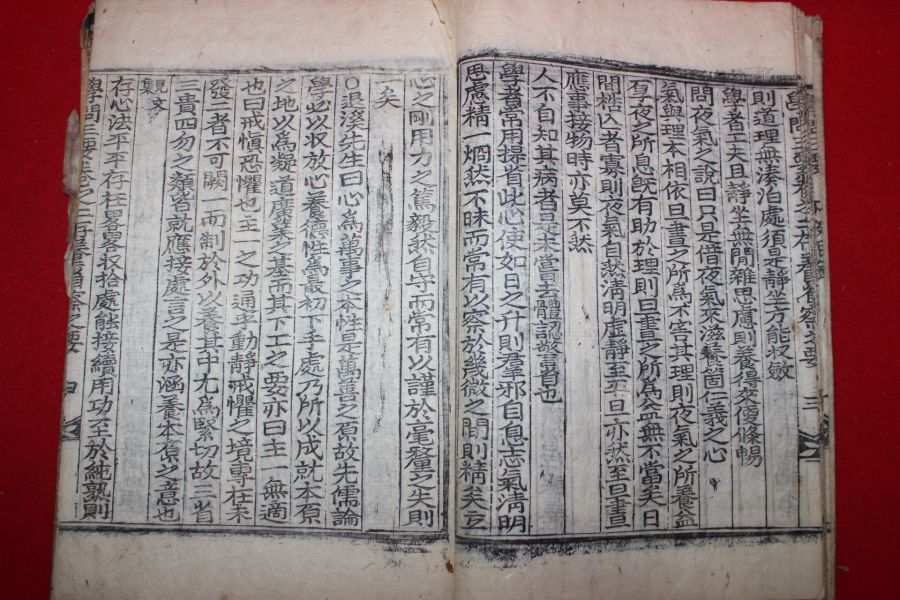 則道理無湊泊處須是靜坐方能收斂
學者工夫且靜坐無閒雜思慮則養得來便條暢
問夜氣之說曰只是借夜氣來滋養箇仁義之心
氣與理本相依旦晝之所爲不害其理則夜氣之所養益
厚夜之所息旣有助於理則旦晝之所爲益無不當矣日
間梏亡者寡則夜氣自然淸明虛靜至平旦亦然至旦晝
應事接物時亦莫不然
人不自知其病者是未嘗去體認警省也
學者常用提省此心使如日之升則羣邪自息志氣淸明
思慮精一烱然不昧而常有以察於幾微之間則精矣立
心之剛用力之篤毅然自守而常有以謹於毫釐之失則
矣
○退溪先生曰心爲萬事之本性是萬善之原故先儒論
學必以收放心養德性爲最初下手處乃所以成就本原
之地以爲凝道廣業之基而其下工之要亦曰主一無適
也曰戒愼恐懼也主一之功通乎動靜戒懼之境專在未
發二者不可闕一而制於外以養其中尤爲緊切故三省
三貴四勿之類皆就應接處言之是亦涵養本原之意也
存心法平平存在畧畧收拾處能接續用功至於純熟則
學問三要卷之二存養省察之要 四